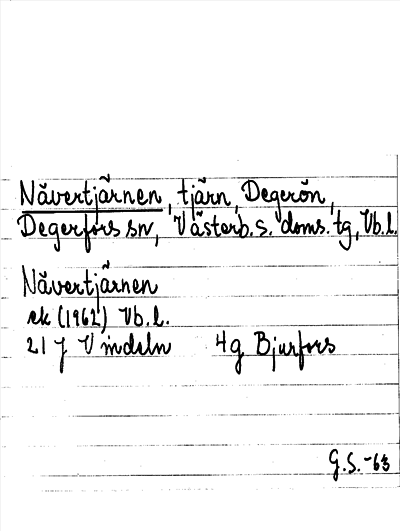 Nävertjärnen, tjärn, Degerön,
Degerfors sn, Västerb. s. doms. tg, Vb. l.
Nävertjärnen
ek (1962) Vb. l.
21 J Vindeln 4g Bjurfors
G.S. -63